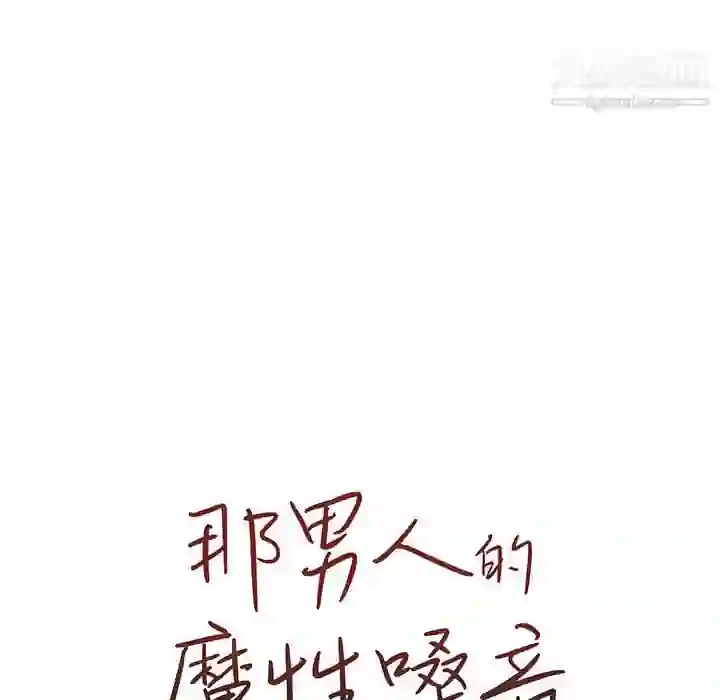 那男人的
魔性嗓音